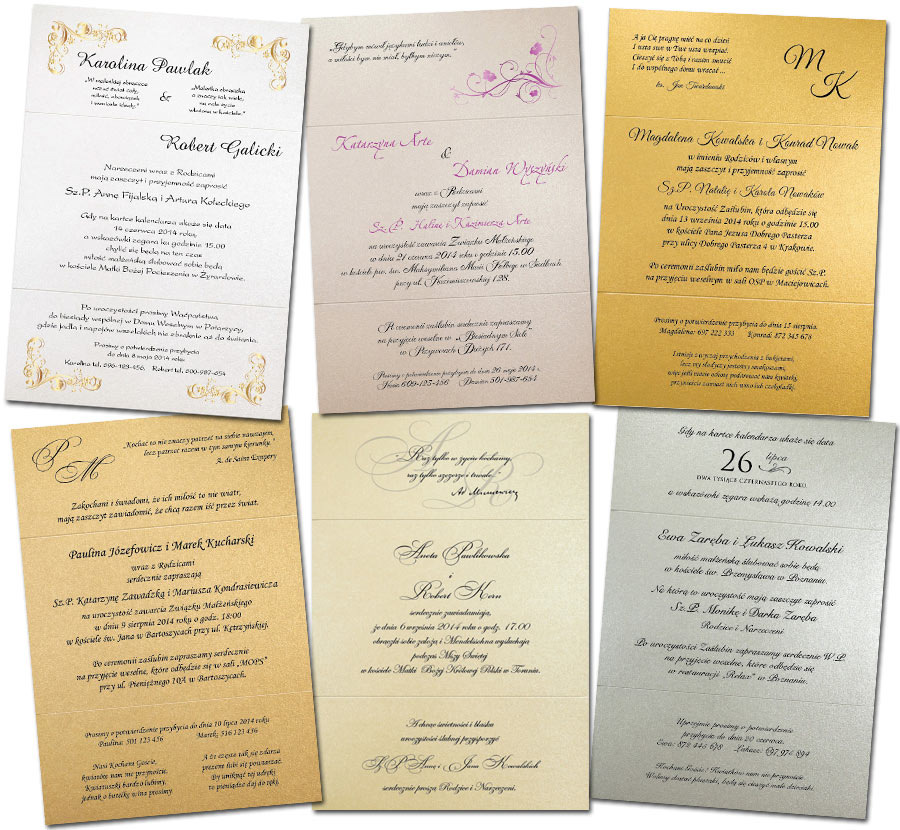 Karolina Pawlak
„W maleńkiej obrączce
&
„Maleńka obrączka
Robert Galicki
Narzeczeni wraz z Rodzicami
mają zaszczyt i przyjemność zaprosić
Sz.P. Annę Fijalską i Artura Koleckiego
Gdy na kartce kalendarza ukaże się data
14 czerwca 2014 roku,
a wskazówki zegara ku godzinie 15.00
chylić się będą na ten czas
miłość małżeńską ślubować sobie będą
w kościele Matki Bożej Pocieszenia w Żyrardowie.
Po uroczystości prosimy Waćpaństwa
do biesiady wspólnej w Domu Weselnym w Potarzycy,
gdzie jadła i napojów wszelakich nie zbraknie aż do świtania.
Prosimy o potwierdzenie przybycia
do dnia 8 maja 2014 roku:
Karolina tel. 696-123-456, Robert tel. 500-987-654
„Gdybym mówił językami ludzi i aniołów,
a miłości bym nie miał, byłbym niczym."
Katarzyna Arte
&
Damian Wyczyński
wraz z Rodzicami
mają zaszczyt zaprosić
Sz.P. Halinę i Kazimierza Arte
na uroczystość zawarcia Związku Małżeńskiego
w dniu 21 czerwca 2014 roku o godzinie 15.00
w kościele pw. św. Maksymiliana Marii Kolbego w Siedlcach
przy ul. Kazimierzowskiej 128.
Po ceremonii zaślubin serdecznie zapraszamy
na przyjęcie weselne w „Biesiadnym Siole"
w Przyworach Dużych 171.
Prosimy o potwierdzenie przybycia do dnia 26 maja 2014 r.
Kasia 609-123-456 Damian 501-987-654
A ja Cię pragnę mieć na co dzień
I usta swe w Twe usta wtapiać.
Cieszyć się z Tobą i razem smucić
I do wspólnego domu wracać ...
ks. Jan Twardowski
M
K
Magdalena Kowalska i Konrad Nowak
w imieniu Rodziców i własnym
mają zaszczyt i przyjemność zaprosić
Sz.P. Natalię i Karola Nowaków
na Uroczystość Zaślubin, która odbędzie się
dnia 13 września 2014 roku o godzinie 15.00
w kościele Pana Jezusa Dobrego Pasterza
przy ulicy Dobrego Pasterza 4 w Krakowie.
Po ceremonii zaślubin miło nam będzie gościć Sz.P.
na przyjęciu weselnym w sali OSP w Maciejowicach.
Prosimy o potwierdzenie przybycia do dnia 15 sierpnia.
Magdalena: 697 222 333 Konrad: 872 345 678
Istnieje zwyczaj przychodzenia z bukietami,
P
M
„Kochać to nie znaczy patrzeć na siebie nawzajem,
lecz patrzeć razem w tym samym kierunku."
A. de Saint Exupery
Zakochani i świadomi, że ich miłość to nie wiatr,
mają zaszczyt zawiadomić, że chcą razem iść przez świat.
Paulina Józefowicz i Marek Kucharski
wraz z Rodzicami
serdecznie zapraszają
Sz.P. Katarzynę Zawadzką i Mariusza Kondrasiewicza
na uroczystość zawarcia Związku Małżeńskiego
w dniu 9 sierpnia 2014 roku o godz. 18:00
w kościele św. Jana w Bartoszycach przy ul. Kętrzyńskiej.
Po ceremonii zaślubin zapraszamy serdecznie
na przyjęcie weselne, które odbędzie się w sali „MOPS"
przy ul. Pieniężnego 10A w Bartoszycach.
Prosimy o potwierdzenie przybycia do dnia 10 lipca 2014 roku
Paulina: 501 123 456 Marek: 516 123 456
Nasi Kochani Goście,
kwiatów nam nie przynoście.
Kwiatuszki bardzo lubimy,
jednak o butelkę wina prosimy
A że często tak się zdarza
prezent lubi się powtarzać.
By uniknąć tej udręki
to pieniądze daj do ręki.
„Raz tylko w życiu kochamy,
raz tylko szczerze i trwale."
Aneta Pawlikowska
i
Robert Horn
serdecznie zawiadamiają,
że dnia 6 września 2014 roku o godz. 17.00
obrączki sobie założą i Mendelsohna wysłuchają
podczas Mszy Świętej
w kościele Matki Bożej Królowej Polski w Toruniu.
A chcąc świetności i blasku
uroczystości ślubnej przysporzyć
Sz.P. Annę i Jana Kowalskich
serdecznie proszą Rodzice i Narzeczeni.
Gdy na kartce kalendarza ukaże się data
26 lipca
DWA TYSIĄCE CZTERNASTEGO ROKU
a wskazówki zegara wskażą godzinę 14.00
Ewa Zaręba i Łukasz Kowalski
miłość małżeńską ślubować sobie będą
w kościele św. Przemysława w Poznaniu.
Na którą to uroczystość mają zaszczyt zaprosić
Sz.P. Monikę i Darka Zaręba
Rodzice i Narzeczeni
Po uroczystości Zaślubin zapraszamy serdecznie W.P.
na przyjęcie weselne, które odbędzie się
w restauracji „Relax" w Poznaniu.
Uprzejmie prosimy o potwierdzenie
przybycia do dnia 20 czerwca.
Kochani Goście! Kwiatków nam nie przynoście